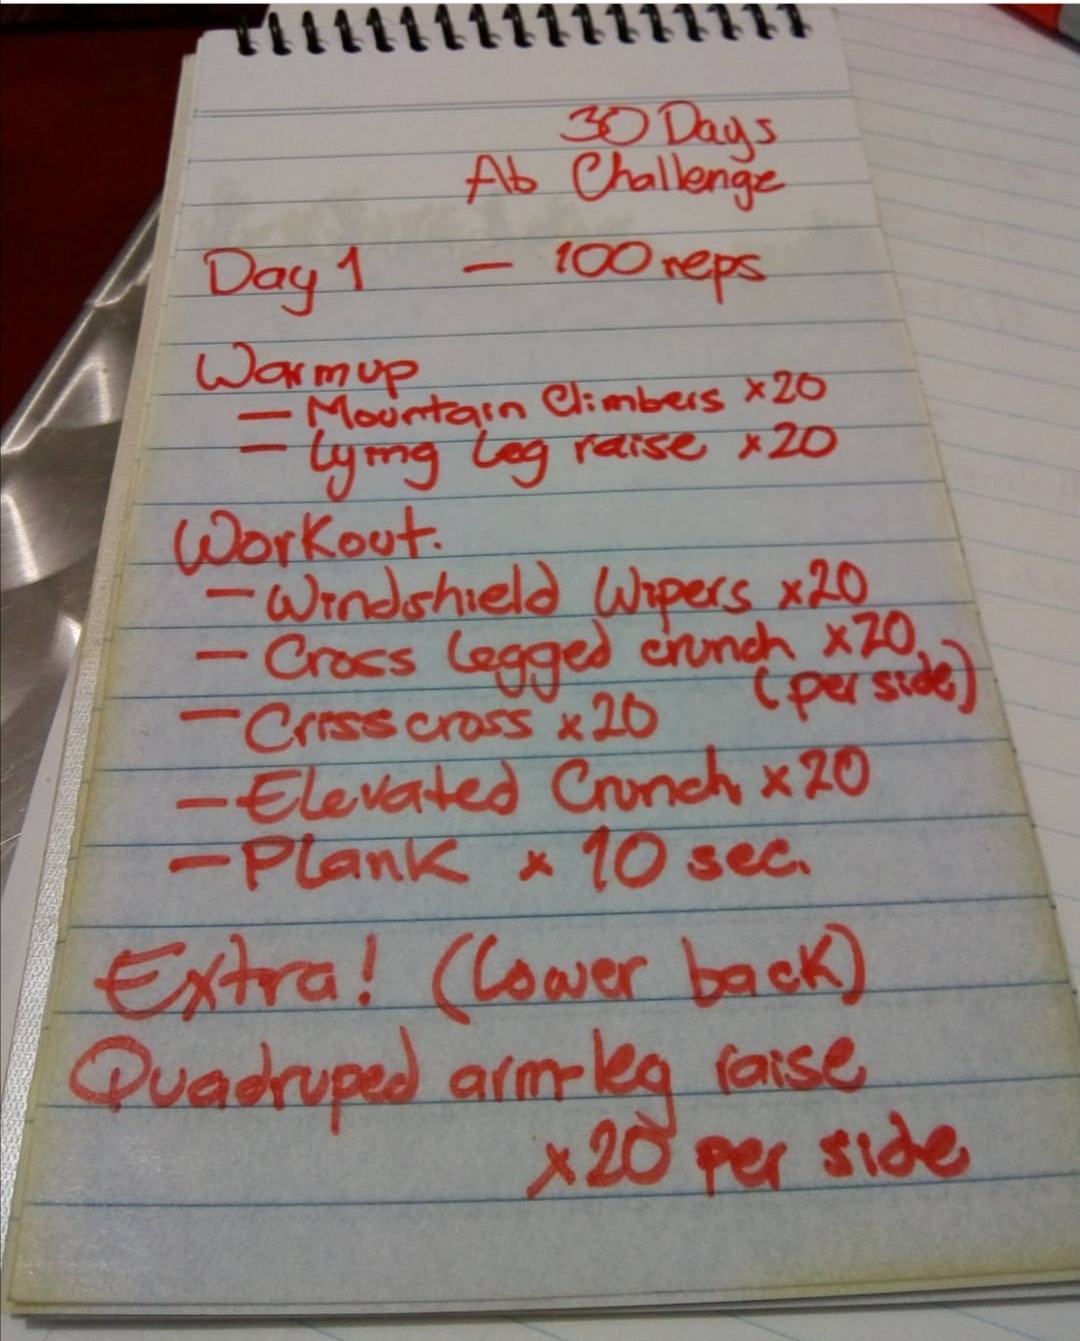 30 Days
Ab Challenge
Day 1 – 100 reps
Warmup
– Mountain Climbers x20
– Lying Leg raise x20
Workout.
– Windshield Wipers x20
– Cross Legged crunch x20
(per side)
– Criss cross x20
– Elevated Crunch x20
– Plank x 10 sec.
Extra! (Lower back)
Quadruped arm-leg raise
x20 per side